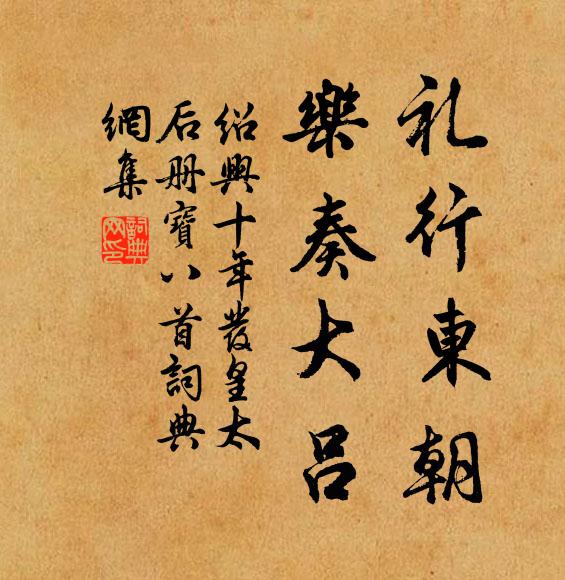 礼行東朝
樂奏大吕
紹興十年發皇太
后册寳八首詞典
網集
詞典網印